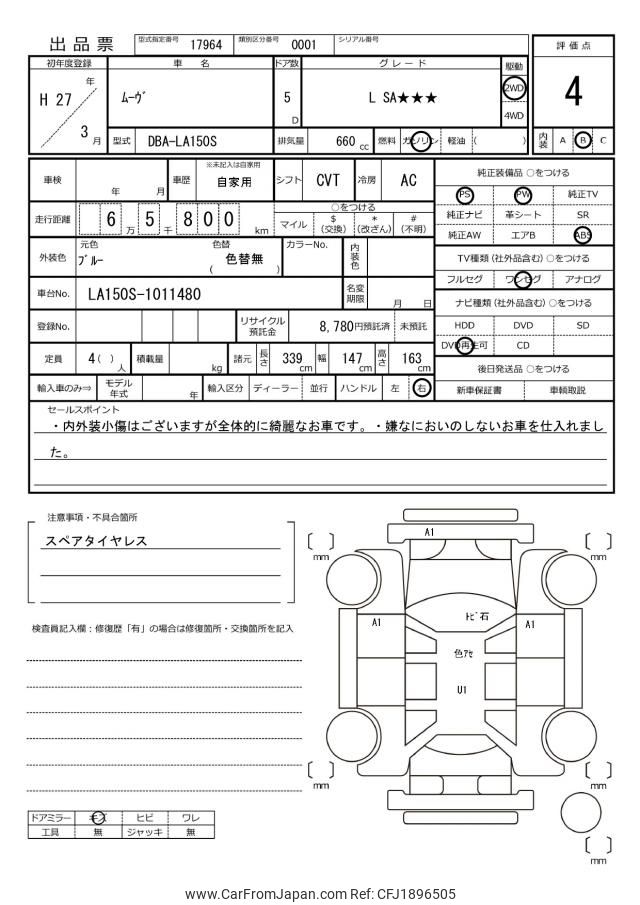 出品票 型式指定番号 17964 類別区分番号 0001 シリアル番号
初年度登録 車名 ドア数 グレード 駆動 評価点
H 27 年 3 月 ﾑｰｳﾞ 5 D L SA★★★ 2WD 4WD 4
型式 DBA-LA150S 排気量 660 cc 燃料 ガソリン 軽油 ( ) 内装 A B C
車検 年 月 車歴 ※未記入は自家用 自家用 シフト CVT 冷房 AC
走行距離 6 万 5 千 8 0 0 km
○をつける
マイル $ (交換) * (改ざん) # (不明)
外装色 元色 ﾌﾞﾙｰ 色替 ( 色替無 ) カラーNo. 内装色
車台No. LA150S-1011480 名変期限 月 日
登録No. リサイクル預託金 8,780円預託済 未預託
定員 4 ( ) 人 積載量 kg 諸元 長さ 339 cm 幅 147 cm 高さ 163 cm
輸入車のみ⇒ モデル年式 年 輸入区分 ディーラー 並行 ハンドル 左 右
純正装備品 ○をつける
PS PW 純正TV
純正ナビ 革シート SR
純正AW エアB ABS
TV種類 (社外品含む) ○をつける
フルセグ ワンセグ アナログ
ナビ種類 (社外品含む) ○をつける
HDD DVD SD
DVD再生可 CD
後日発送品 ○をつける
新車保証書 車輌取説
セールスポイント
・内外装小傷はございますが全体的に綺麗なお車です。・嫌なにおいのしないお車を仕入れまし
た。
注意事項・不具合箇所
スペアタイヤレス
検査員記入欄：修復歴「有」の場合は修復箇所・交換箇所を記入
ドアミラー キズ ヒビ ワレ
工具 無 ジャッキ 無
A1
mm mm
ﾄﾋﾞ石
A1 A1
色ｱｾ
U1
mm mm
mm
www.CarFromJapan.com Ref: CFJ1896505